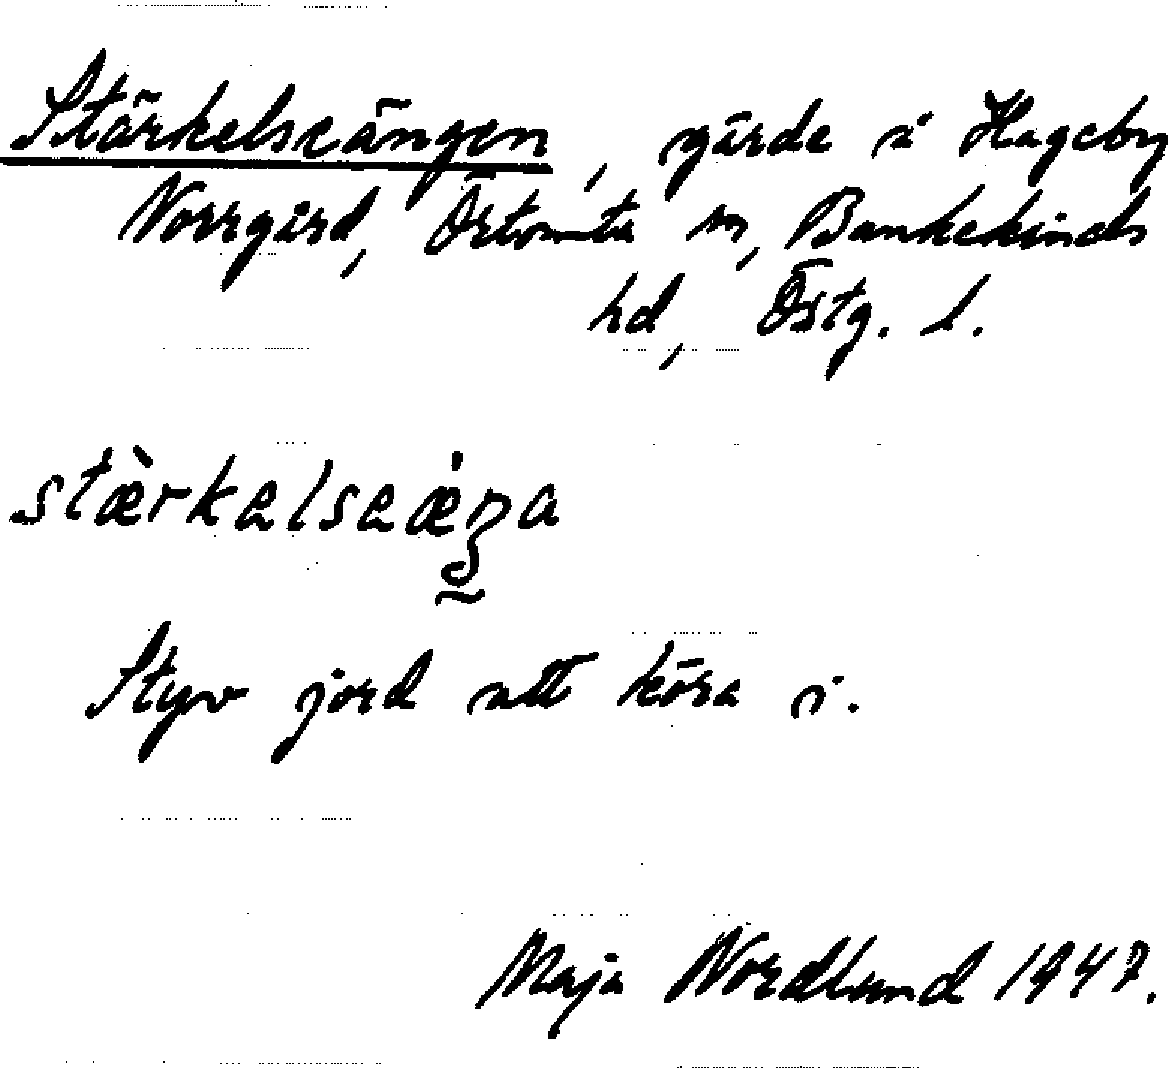 Stärkelseängen, gärde i Hageby
Norrgård, Örtomta sn, Bankekinds
hd, Östg. l.
stæ̀rkelseǽŋa
Styv jord att köra i.
Maja Nordlund 1947.